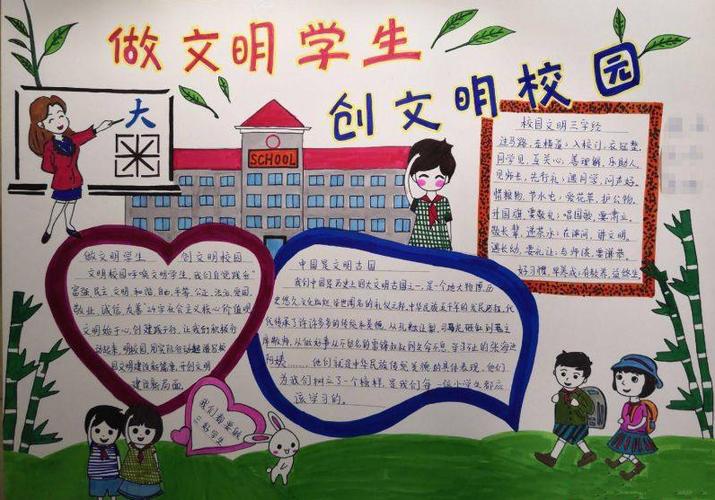 做文明学生
创文明校园
大
米
SCHOOL
校园文明三字经
过马路,走横道;入校门,衣冠整,
同学见,互关心,善理解,乐助人,
见师长,先行礼;遇同学,问声好,
惜粮物,节水电;爱花草,护公物,
升国旗,要敬礼;唱国歌,要肃立,
敬长辈,进茶水;在课间,讲文明,
遇长幼,要礼让;与师谈,要谦恭,
好习惯,早养成;有教养,益终生。
做文明学生 创文明校园
文明校园呼唤文明学生,我们自觉践行"
富强、民主、文明、和谐、自由、平等、公正、法治、爱国、
敬业、诚信、友善"24字社会主义核心价值观
文明始于心,创建践于行,让我们积极行
动起来,用实际行动
园文明建设的篇章,开创文明
建设新局面。
中国是文明古国
我们中国是历史上四大文明古国之一,是个地大物博,历
史悠久文化灿烂,举世闻名的礼仪之邦,中华民族五千年的发展历程,代
代传承了许许多多的传统和美德,从孔融让梨、司马光砸缸到君主
拜教师,从做好事从不留名的雷锋叔叔到生命不息、学习不止的张海迪
阿姨……他们就是中华民族传统美德的具体表现,他们
为我们树立了一个榜样,是我们每一位小学生都应
该学习的。
我们都要做
三好学生